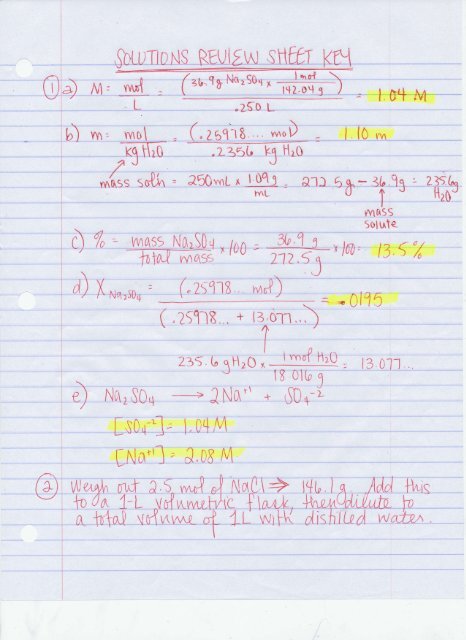 SOLUTIONS REVIEW SHEET KEY
① a) M = mol / L = (36.9g Na2SO4 x 1 mol / 142.04 g) / .250 L = 1.04 M
b) m = mol / kg H2O = (.25978... mol) / .2356 kg H2O = 1.10 m
mass sol'n = 250mL x 1.09 g / mL = 272.5g - 36.9g = 235.6g H2O
mass solute
c) % = mass Na2SO4 / total mass x 100 = 36.9 g / 272.5 g x 100 = 13.5%
d) X Na2SO4 = (.25978... mol) / (.25978... + 13.077...) = .0195
235.6 g H2O x 1 mol H2O / 18.016 g = 13.077...
e) Na2SO4 → 2Na+1 + SO4-2
[SO4-2] = 1.04 M
[Na+1] = 2.08 M
② Weigh out 2.5 mol of NaCl ⇒ 146.1 g. Add this
to a 1-L volumetric flask, then dilute to
a total volume of 1L with distilled water.